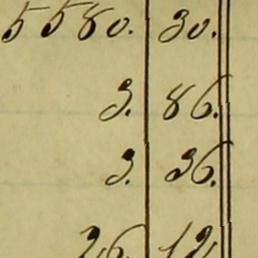 5580. 30.
3. 86.
3. 36.
26. 12